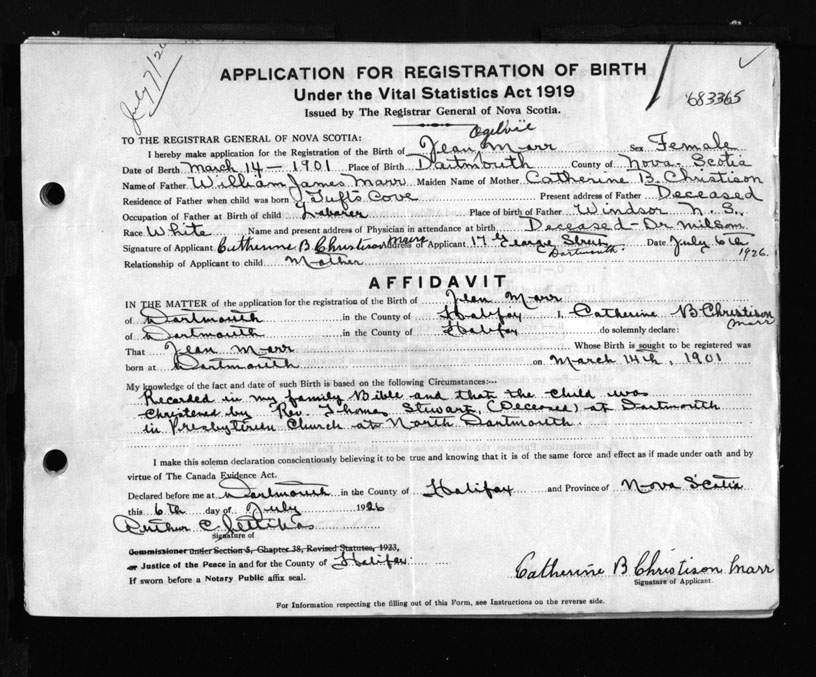 July 7/26
APPLICATION FOR REGISTRATION OF BIRTH
Under the Vital Statistics Act 1919
683365
Issued by The Registrar General of Nova Scotia.
Ogilvie
TO THE REGISTRAR GENERAL OF NOVA SCOTIA:
I hereby make application for the Registration of the Birth of Jean Marr Sex Female
Date of Birth March 14 - 1901 Place of Birth Dartmouth County of Nova-Scotia
Name of Father William James Marr Maiden Name of Mother Catherine B. Christison
Residence of Father when child was born Tufts Cove Present address of Father Deceased
Occupation of Father at Birth of child Labarer Place of birth of Father Windsor N.S.
Race White Name and present address of Physician in attendance at birth Deceased - Dr Milsom
Signature of Applicant Catherine B Christison Marr Address of Applicant 17 George Street Date July 6th
Dartmouth. 1926.
Relationship of Applicant to child Mother
AFFIDAVIT
IN THE MATTER of the application for the registration of the Birth of Jean Marr
of Dartmouth in the County of Halifax I, Catherine B Christison
Marr
of Dartmouth in the County of Halifax do solemnly declare:
That Jean Marr Whose Birth is sought to be registered was
born at Dartmouth on March 14th, 1901
My knowledge of the fact and date of such Birth is based on the following Circumstances:—
Recorded in my family Bible and that the child was
christened by Rev. Thomas Stewart, (Deceased) at Dartmouth
in Presbyterian Church at North Dartmouth.
I make this solemn declaration conscientiously believing it to be true and knowing that it is of the same force and effect as if made under oath and by
virtue of The Canada Evidence Act.
Declared before me at Dartmouth in the County of Halifax and Province of Nova Scotia
this 6th day of July 1926
Arthur C.
Signature of
Commissioner under Section 5, Chapter 38, Revised Statutes, 1923,
or Justice of the Peace in and for the County of Halifax
If sworn before a Notary Public affix seal.
Catherine B Christison Marr
Signature of Applicant.
For Information respecting the filling out of this Form, see Instructions on the reverse side.